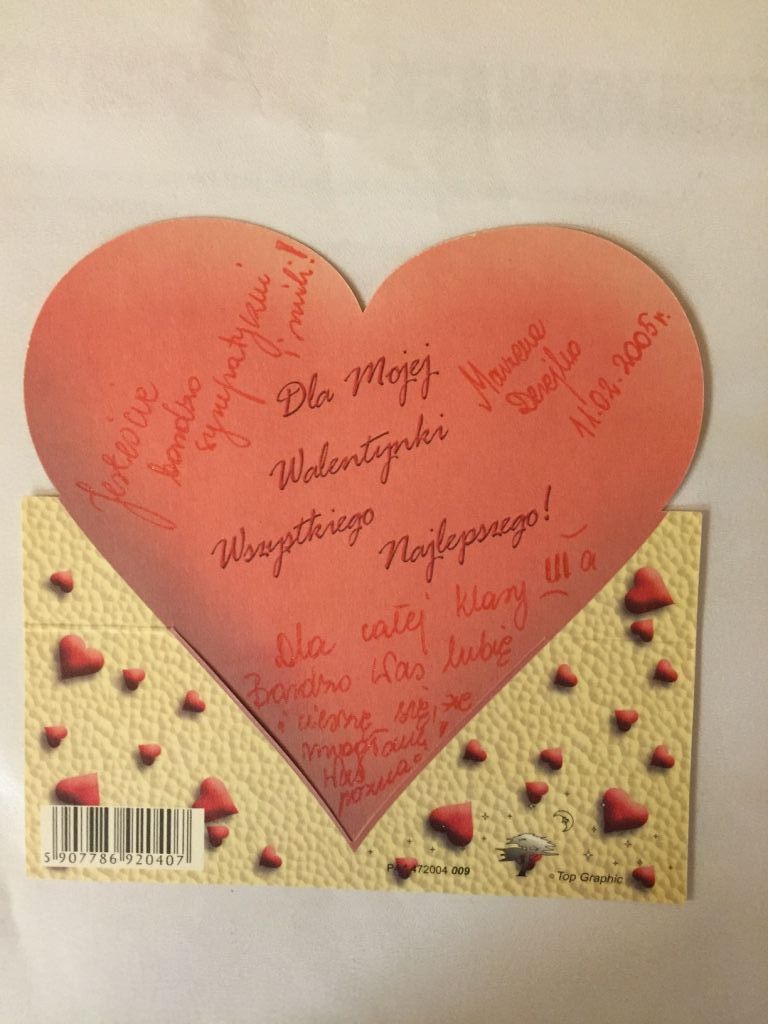 Jesteście
bardzo
sympatyczni
i mili!
Dla Mojej
Walentynki
Wszystkiego
Najlepszego!
Marzena
11.02.2005r.
Dla całej klasy III a
Bardzo Was lubię
i cieszę się, że
mogłam
Was
poznać
5907786920407
472004 009
Top Graphic